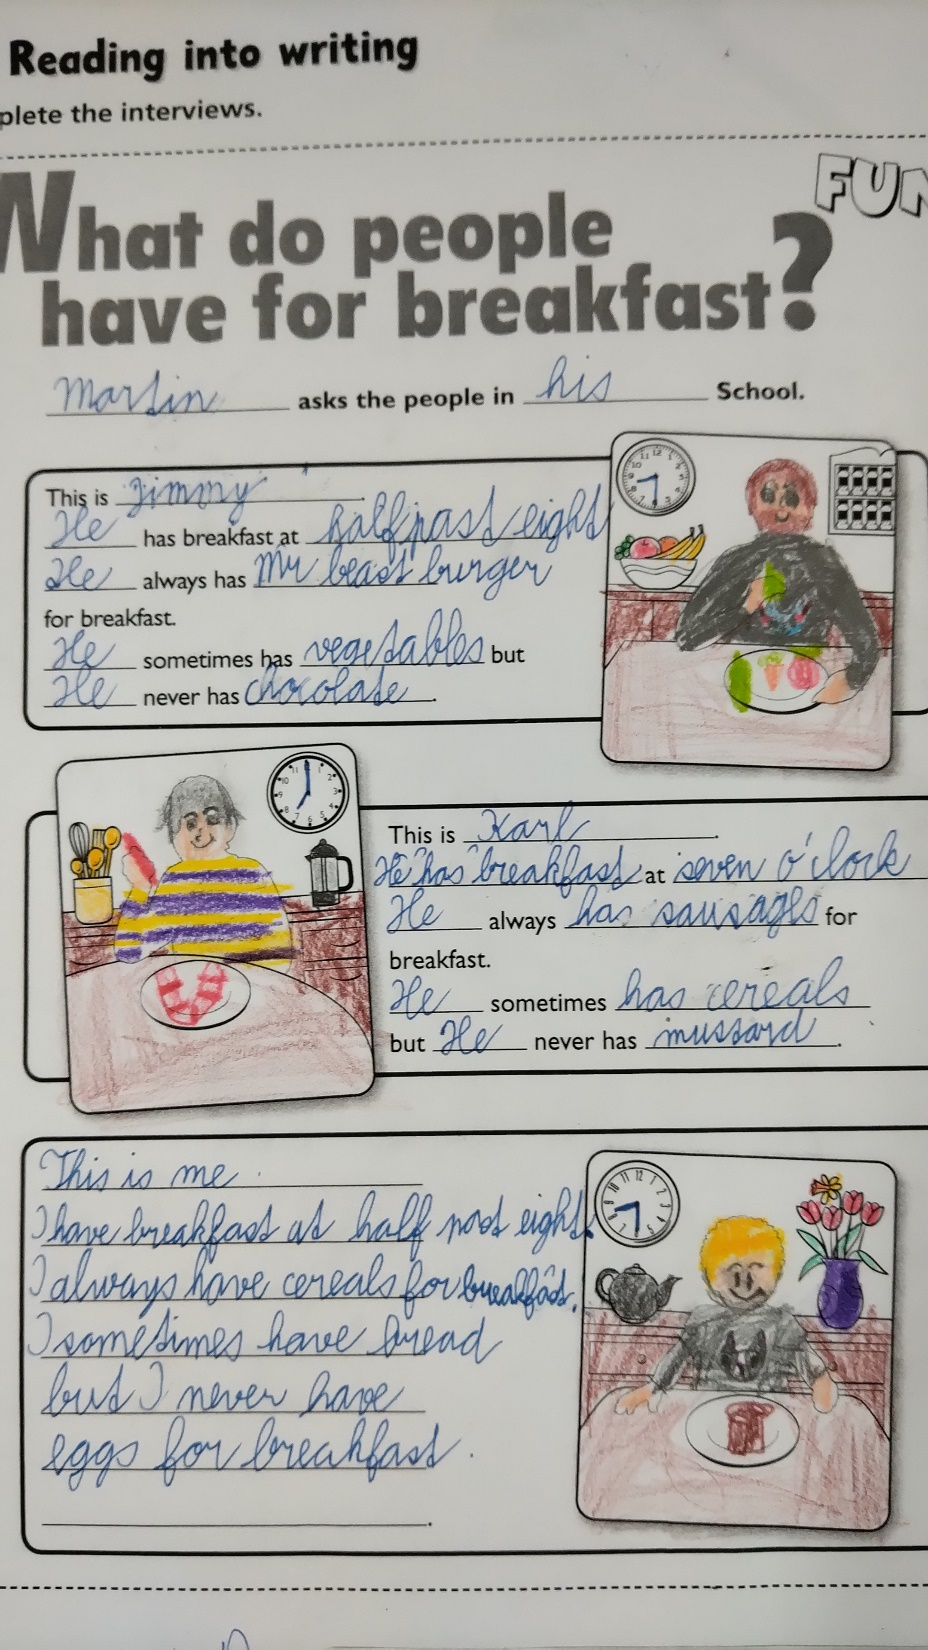 Reading into writing
plete the interviews.
FUN
What do people
have for breakfast?
Martin asks the people in his School.
This is Jimmy.
He has breakfast at half past eight
He always has Mr beast burger
for breakfast.
He sometimes has vegetables but
He never has chocolate.
This is Karl.
He has breakfast at seven o'clock
He always has sausages for
breakfast.
He sometimes has cereals
but He never has mustard.
This is me.
I have breakfast at half past eight.
I always have cereals for breakfast.
I sometimes have bread
but I never have
eggs for breakfast.